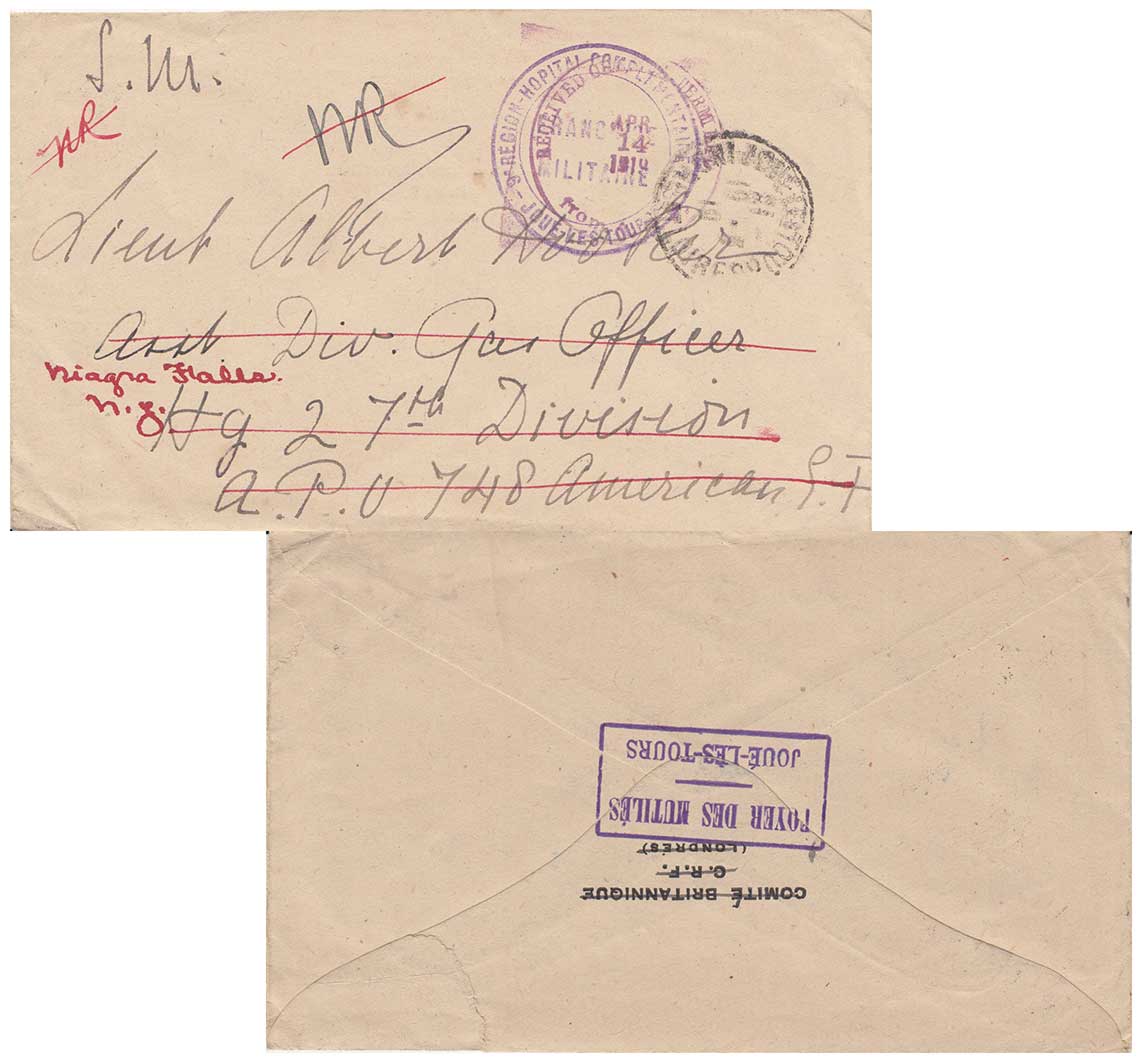 S.M.
NR
NR
9e RÉGION-HOPITAL COMPLÉMENTAIRE
JOUÉ-LES-TOURS
MILITAIRE
RECEIVED
APR
14
1919
from
Lieut Albert
Asst Div. Gas Officer
Niagra Falls.
N.Y.
Hq 27th Division
A.P.O 748 American E.F
FOYER DES MUTILÉS
JOUÉ-LÈS-TOURS
COMITÉ BRITANNIQUE
C.R.F.
(LONDRES)